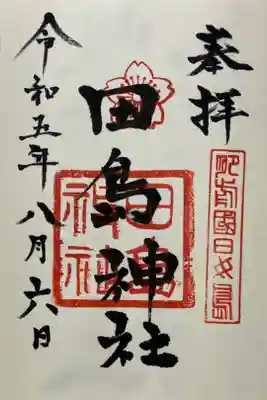 奉拝
肥前國日女島
田島神社
田島
神社
令和五年八月六日